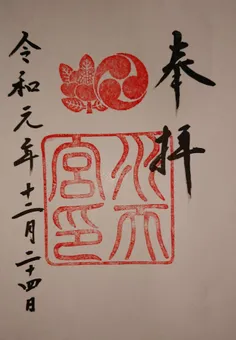 奉拝
水天
宮印
令和元年十二月二十四日